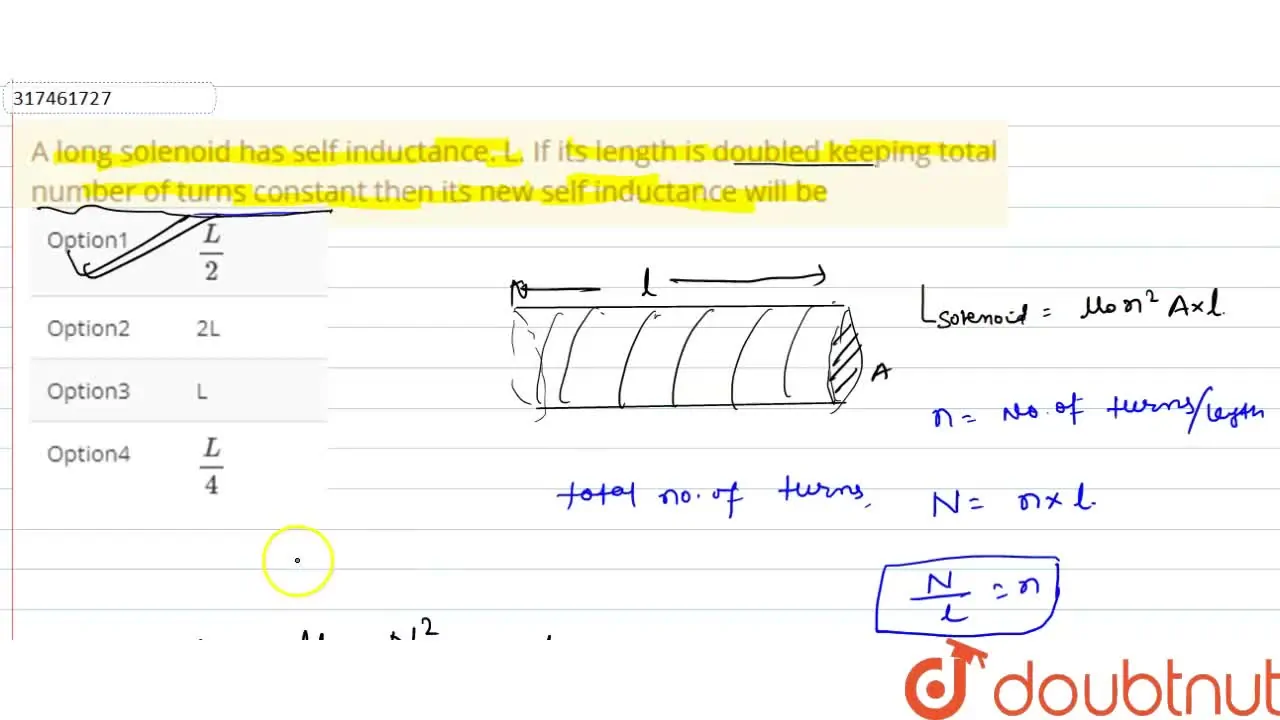 317461727
A long solenoid has self inductance. L. If its length is doubled keeping total
number of turns constant then its new self inductance will be
Option1 L/2
Option2 2L
Option3 L
Option4 L/4
l
A
L solenoid = μ₀n² A×l.
n = No. of turns/length
total no. of turns, N = n×l.
N/l = n
N²
doubtnut